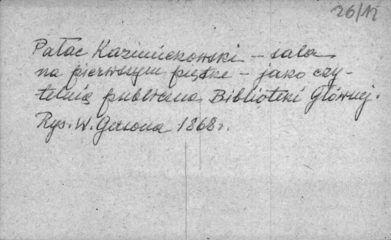 26/12
Pałac Kazimierkowski – sala
na pierwszym piętrze – jako czy-
telnia publiczna Biblioteki Głównej.
Rys. W. Gersona 1868 r.